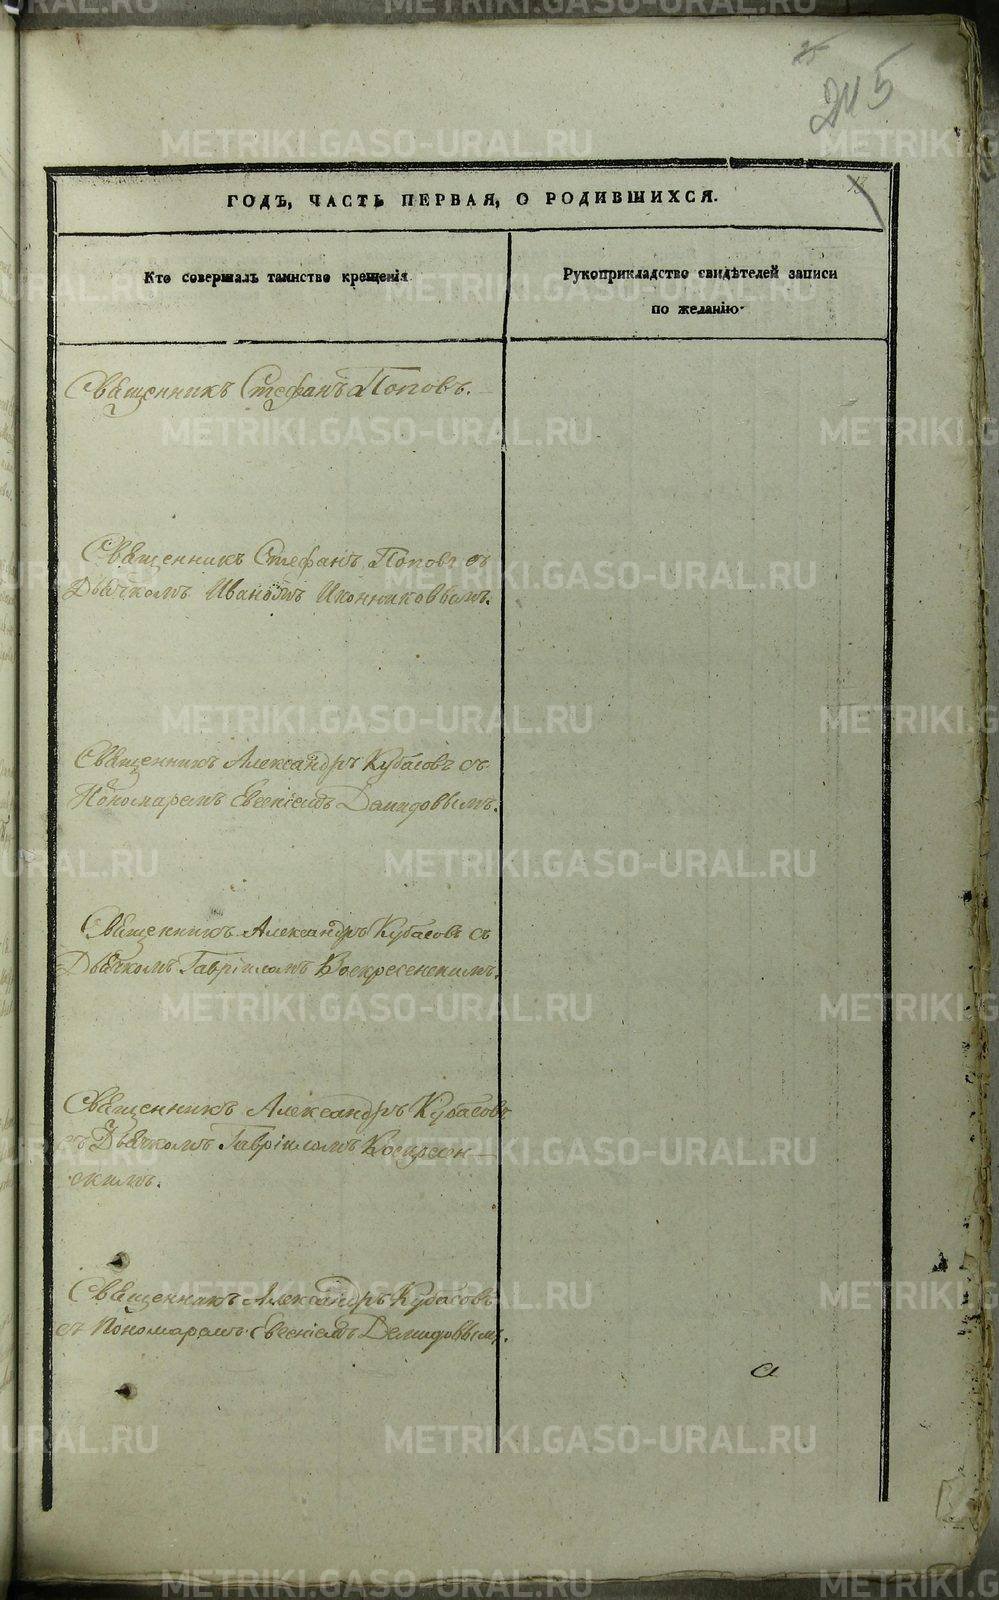 25
245
ГОДЪ, ЧАСТЬ ПЕРВАЯ, О РОДИВШИХСЯ.
Кто совершалъ таинство крещенія
Рукоприкладство свидѣтелей записи
по желанію
Священникъ Стефанъ Поповъ.
Священникъ Стефанъ Поповъ съ
Дьячкомъ Иваномъ Иконниковымъ.
Священникъ Александръ Кубасовъ съ
Пономаремъ Евгеніемъ Демидовымъ.
Священникъ Александръ Кубасовъ съ
Дьячкомъ Гавріиломъ Воскресенскимъ.
Священникъ Александръ Кубасовъ
съ Дьячкомъ Гавріиломъ Воскресен-
скимъ.
Священникъ Александръ Кубасовъ
съ Пономаремъ Евгеніемъ Демидовымъ.
METRIKI.GASO-URAL.RU